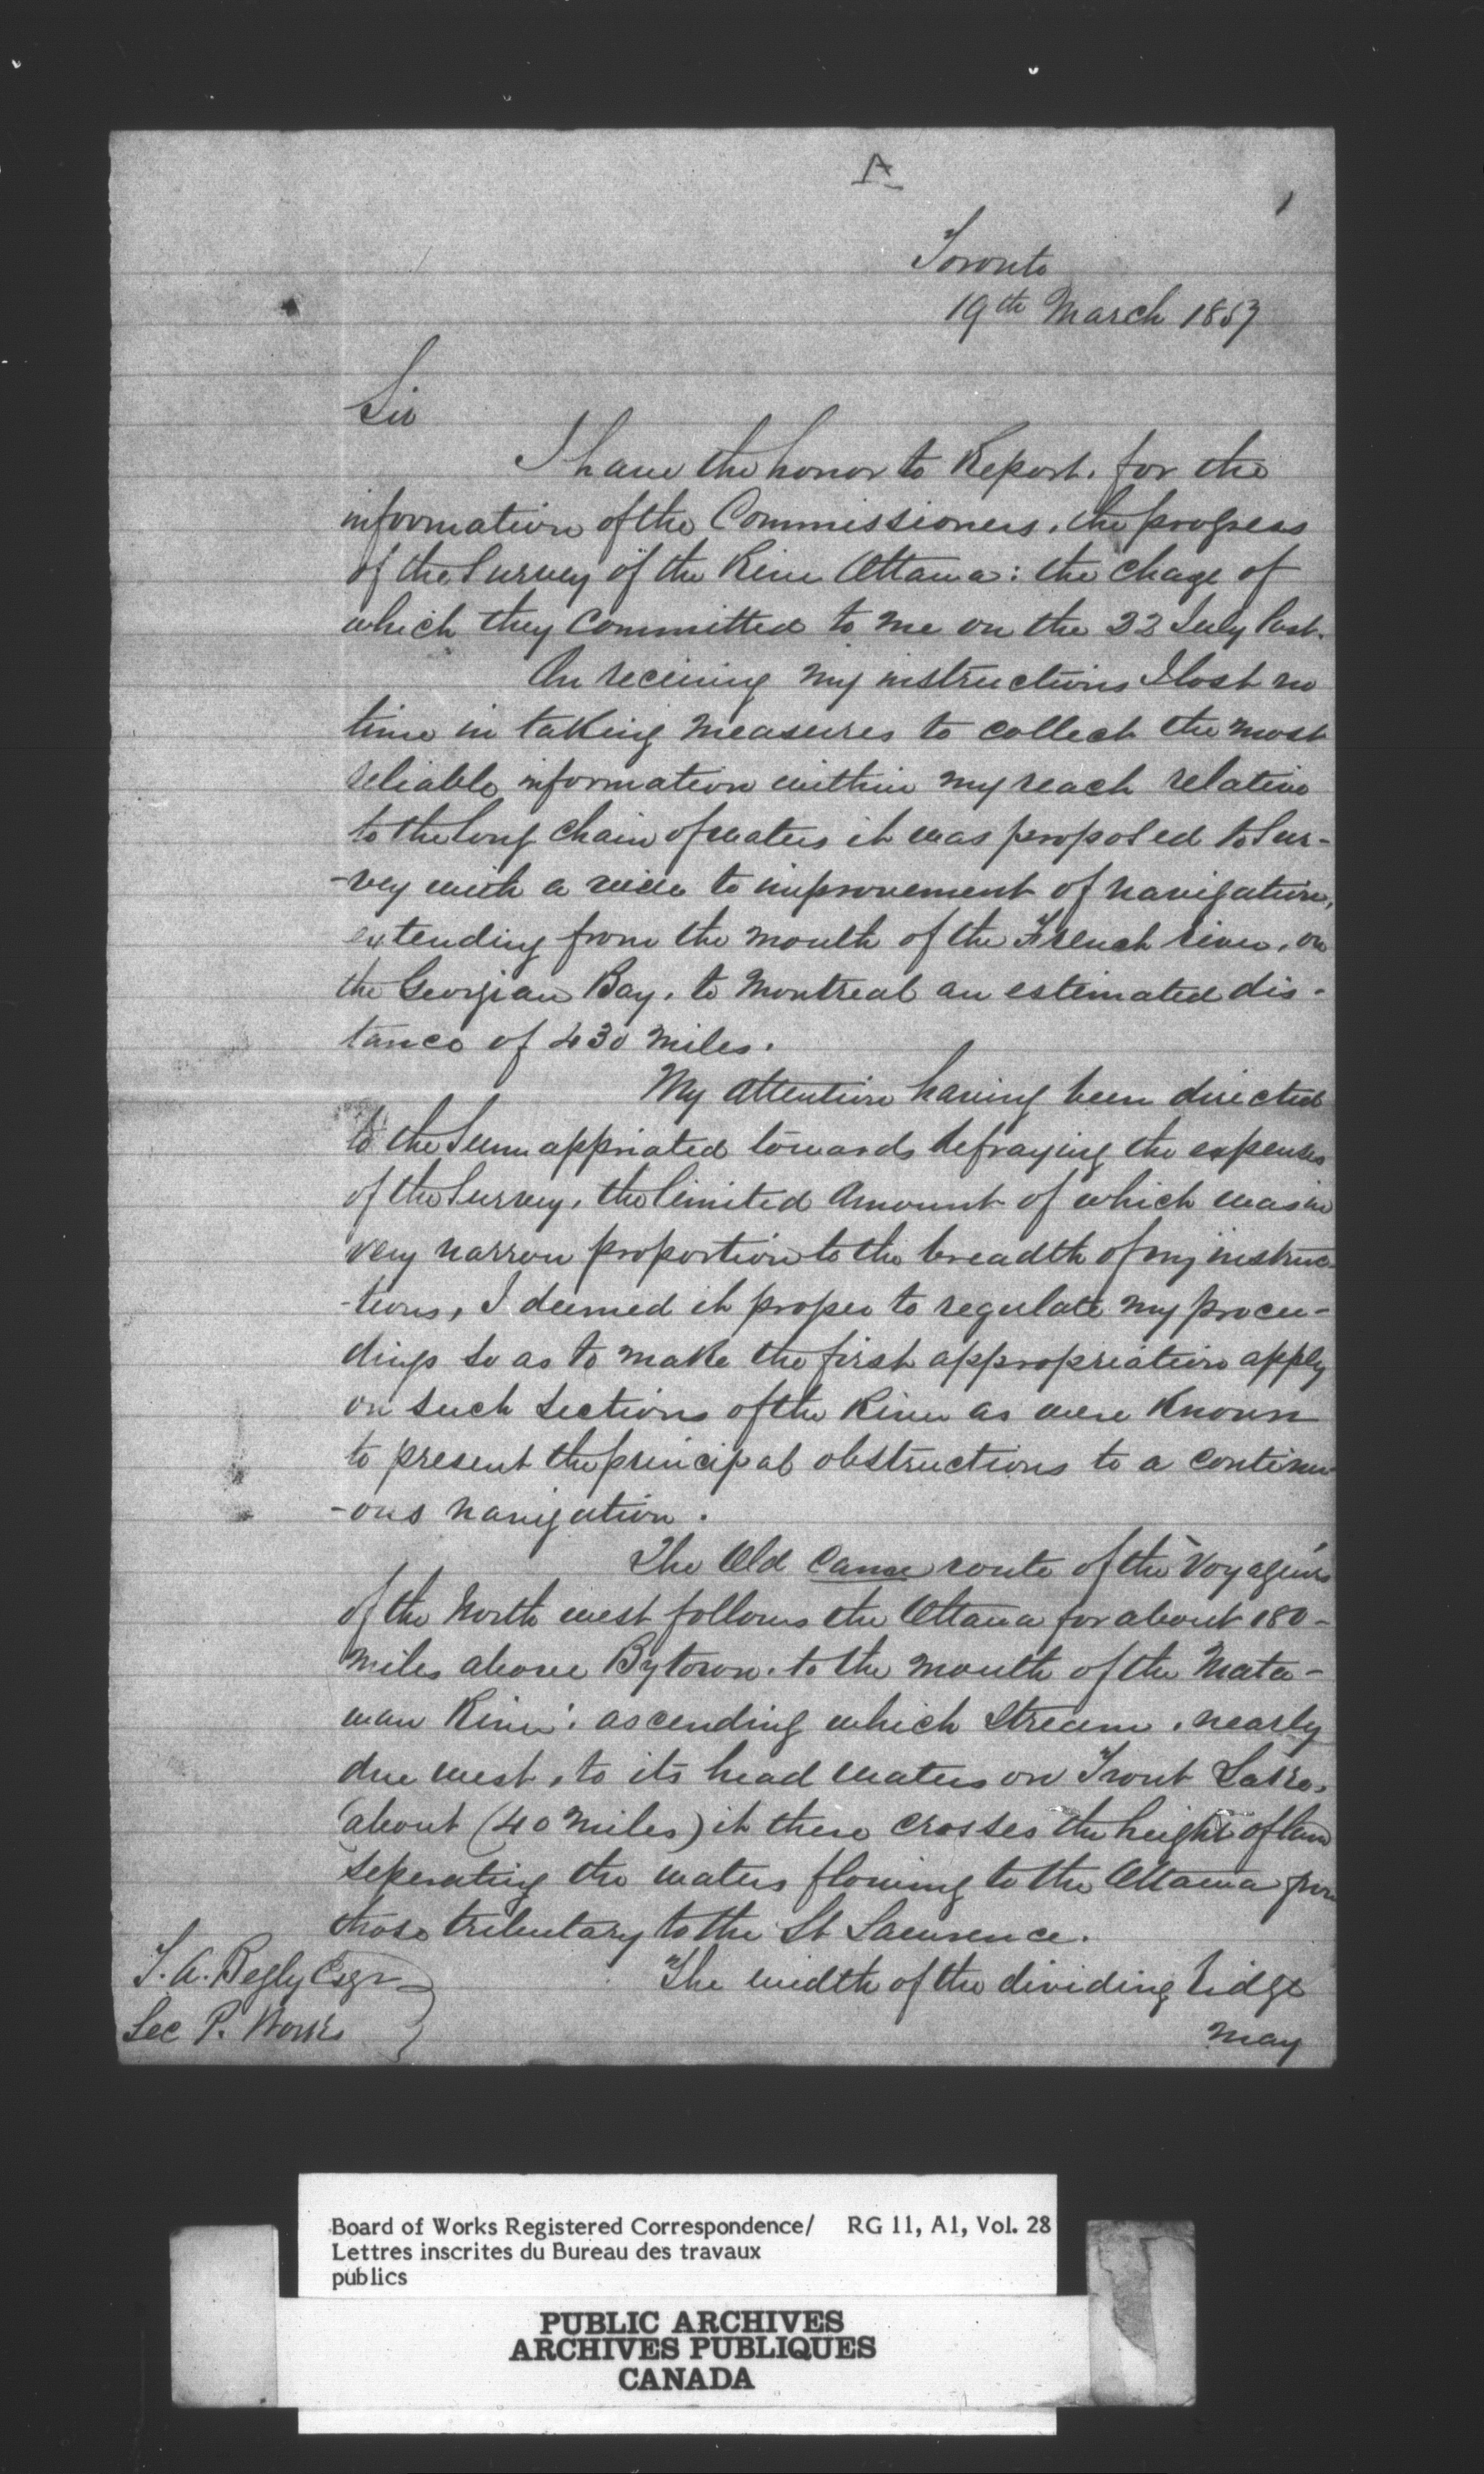 A
1
Toronto
19th March 1857
Sir
I have the honor to Report, for the
information of the Commissioners, the progress
of the Survey of the River Ottawa: the chage of
which they Committed to me on the 22 July last.
On receiving my instructions I lost no
time in taking measures to collect the most
reliable information within my reach relative
to the long chain of waters it was proposed to Sur-
-vey with a view to improvement of navigation,
extending from the mouth of the French river, on
the Georgian Bay, to Montreal an estimated dis-
tance of 430 miles.
My attention having been directed
to the Sum appriated towards defraying the expenses
of the Survey, the limited amount of which was in
very narrow proportion to the breadth of my instruc-
-tions, I deemed it proper to regulate my procee-
dings so as to make the first appropriation apply
on such sections of the River as were known
to present the principal obstructions to a continu-
-ous navigation.
The Old Canoe route of the "Voyageurs"
of the North west follows the Ottawa for about 180-
miles above Bytown, to the mouth of the Mata-
wan River; ascending which stream, nearly
due west, to its head waters on Trout Lake,
about (40 miles) it there crosses the height of land
seperating the waters flowing to the Ottawa from
those tributary to the St Lawrence.
The width of the dividing ridge
may
T. A. Begly Esqr
Sec P. Works
Board of Works Registered Correspondence/ RG 11, A1, Vol. 28
Lettres inscrites du Bureau des travaux
publics
PUBLIC ARCHIVES
ARCHIVES PUBLIQUES
CANADA